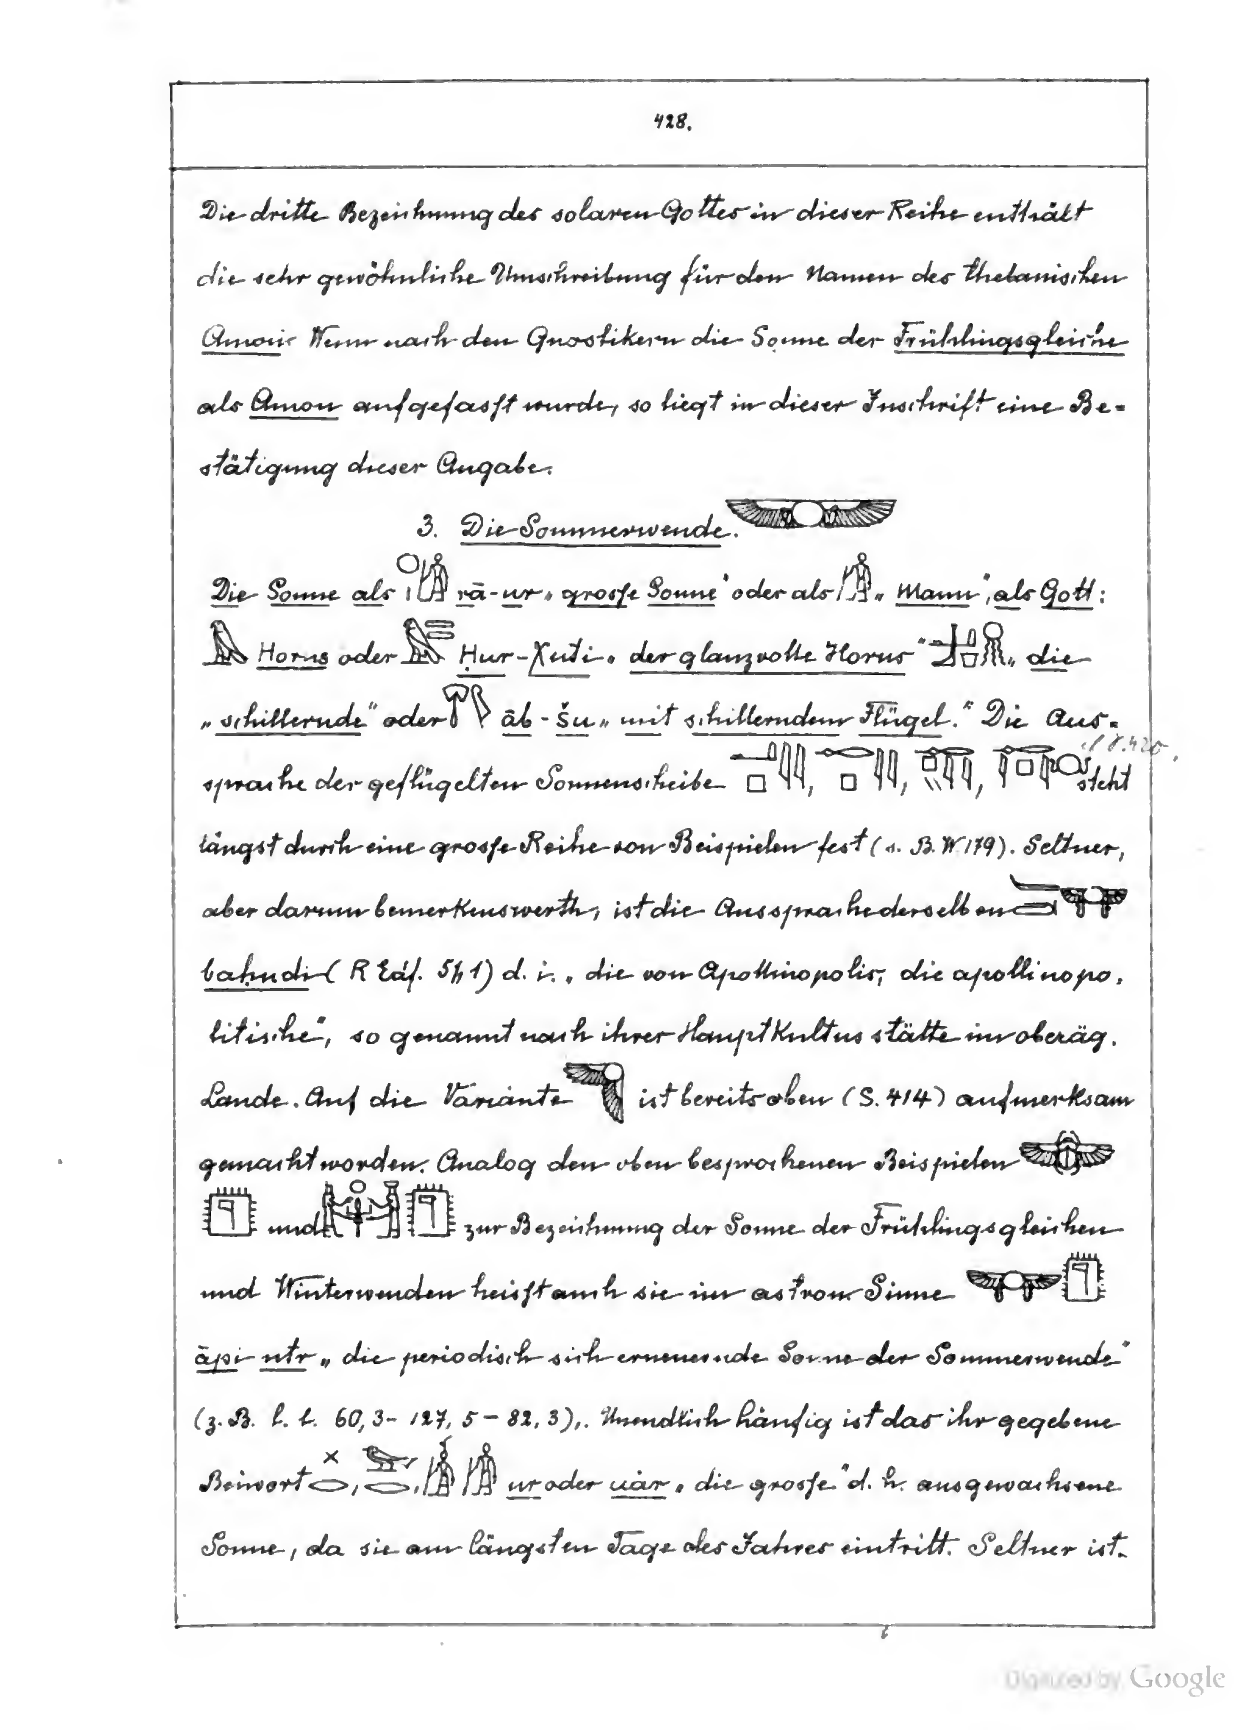 428.
Die dritte Bezeichnung des solaren Gottes in dieser Reihe enthält
die sehr gewöhnliche Umschreibung für den Namen des thebanischen
Amon. Wenn nach den Gnostikern die Sonne der Frühlingsgleiche
als Amon aufgefasst wurde, so liegt in dieser Inschrift eine Be-
stätigung dieser Angabe.
3. Die Sommerwende.
Die Sonne als rā-ur „grosse Sonne" oder als „Mann", als Gott:
Horus oder Ḥur-χuti „der glanzvolle Horus" „die
„schillernde" oder āb-šu „mit schillerndem Flügel." Die Aus-
sprache der geflügelten Sonnenscheibe , , , steht
längst durch eine grosse Reihe von Beispielen fest (s. B. W. 179). Seltner,
aber darum bemerkenswerth, ist die Aussprache derselben
baḥudi (R Edf. 5h1) d. i. „die von Apollinopolis, die apollinopo-
litische", so genannt nach ihrer Hauptkultusstätte im oberäg.
Lande. Auf die Variante ist bereits oben (S. 414) aufmerksam
gemacht worden. Analog den oben besprochenen Beispielen
und zur Bezeichnung der Sonne der Frühlingsgleichen
und Winterwenden heisst auch sie im astron. Sinne
āpi ntr „die periodisch sich erneuernde Sonne der Sommerwende"
(z. B. l. l. 60,3 - 127, 5 - 82, 3). Unendlich häufig ist das ihr gegebene
Beiwort , , ur oder uàr „die grosse" d. h. ausgewachsene
Sonne, da sie am längsten Tage des Jahres eintritt. Seltner ist
Digitized by Google